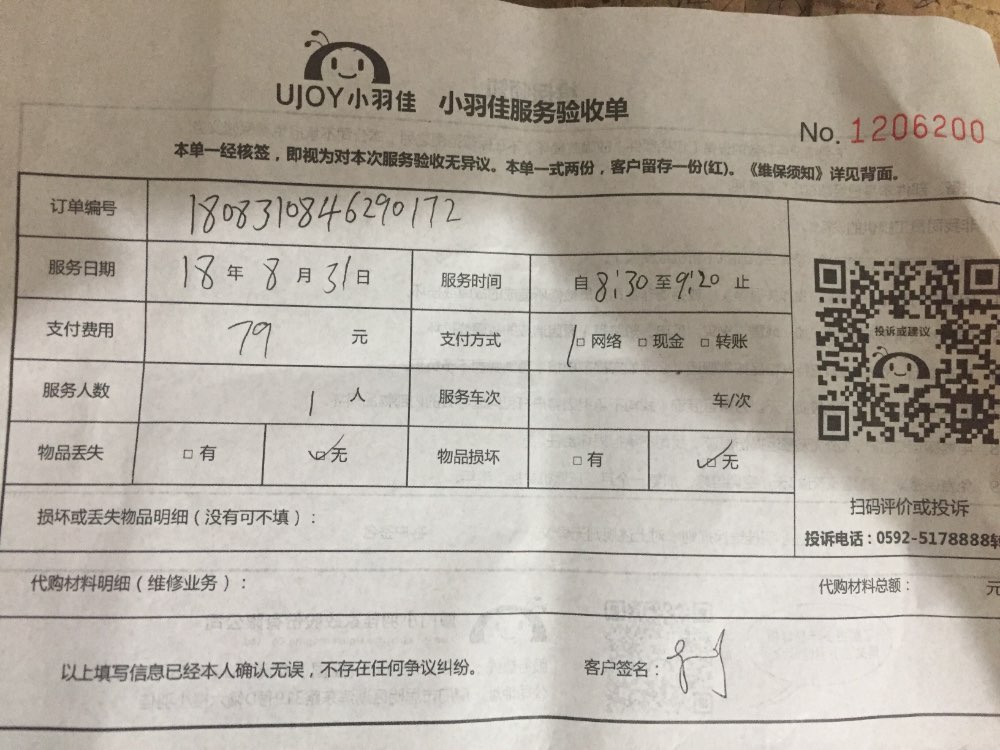 UJOY小羽佳 小羽佳服务验收单
No. 1206200
本单一经核签，即视为对本次服务验收无异议。本单一式两份，客户留存一份(红)。《维保须知》详见背面。
订单编号 1808310846290172
服务日期 18 年 8 月 31 日 服务时间 自 8:30 至 9:20 止
支付费用 79 元 支付方式 □ 网络 □ 现金 □ 转账
服务人数 1 人 服务车次 车/次
物品丢失 □ 有 □ 无 物品损坏 □ 有 □ 无
投诉或建议
扫码评价或投诉
投诉电话：0592-5178888转
损坏或丢失物品明细（没有可不填）：
代购材料明细（维修业务）： 代购材料总额： 元
以上填写信息已经本人确认无误，不存在任何争议纠纷。 客户签名：